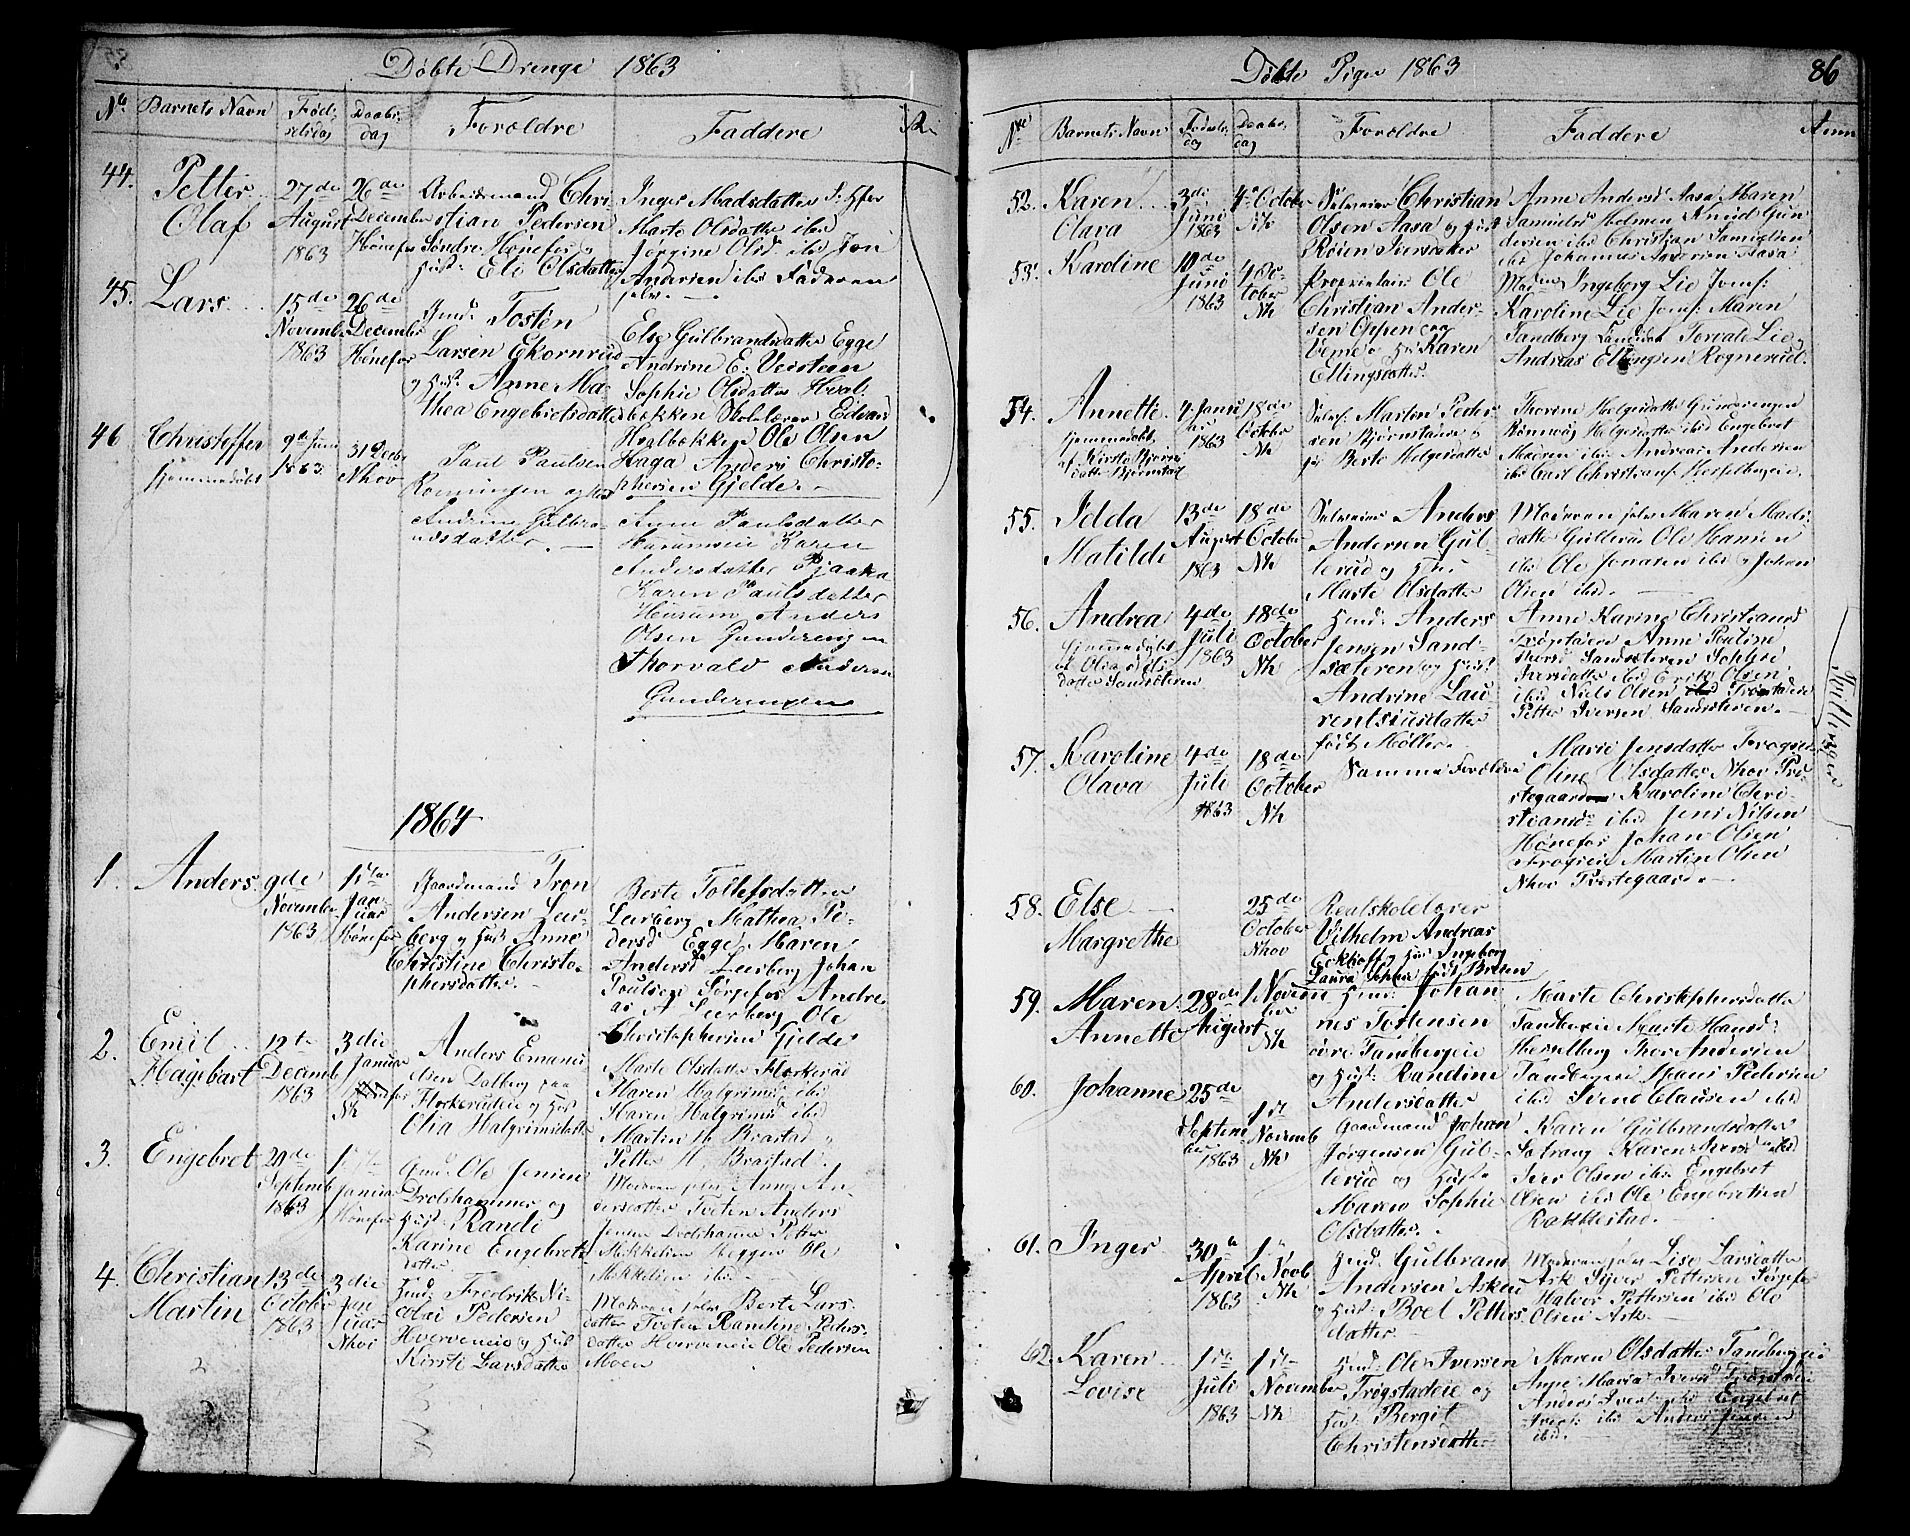 Døbte Drenge 1863
No Barnets Navn Fødselsdag Daabsdag Forældre Faddere
44. Petter Olaf
27de August 1863
26de December Hønefos
Arbeidsmand Chri
stian Pedersen
Søndre Hønefos
Hust: Eli Olsdatter
Inger Madsdatter
Marte Olsdatter ibid
Jørgine Olsd. ibid Jon
Andersen ibid Faderen
selv.
45. Lars
15de November 1863
26de December Hønefos
Gmd: Tosten
Larsen Ekornrud
og Hust: Anne Ma
thea Engebretsdatter
Else Gulbrandsdatter Egge
Andrine E. Veisteen
Sophie Olsdatter Hval
bækken Skolelærer Edvard
Hvalbækken Ole Olsen
Haga Anders Christo-
phersen Gjelde.
46 Christoffer
hjemmedøbt
9de Juni 1863
31 Decbr Nhov
Paul Paulsen
Andrine Gulbra
ndsdatter.
Anne Paulsdatter
Karen
Andersdatter Pjaaka
Karen Paulsdatter
Husum Anders
Olsen Gunderengen
Thorvald Andersen
Gunderengen
1864
1. Anders
9de November 1863
1ste Januar Hønefos
Gaardmand Tron
Andersen Leer-
berg og Hust Anne
Christine Christo-
phersdatter.
Berte Tollefsdatter
Leerberg Mathea Pe-
dersd Egge Maren
Andersd Leerberg Johan
Poulsen Sørgefos Andre
as A Leerberg Ole
Christophersen Gjelde
2. Emil Hagebart
12te Decemb 1863
3die Januar Nh
Anders Emanu
elsen Dalberg paa
Flaskerudeie og Hust
Olia Halgrimsdatter
Marte Olsdatter Flaskerud
Maren Halgrimsd ibid
Karen Halgrimsd ibid
Martin H. Brastad
Petter H. Brastad.
3. Engebret
20de Septemb 1863
1ste Januar Hønefos
Gmd: Ole Jensen
Drolshammer og
Hust: Randi
Karine Engebrets
datter
Moderen selv Anne An-
dersdatter Tveten Anders
Jensen Drolshammer Petter
Mikkelsen Heggen Ole
Mikkelsen ibid
4. Christian Martin
13de October 1863
3die Januar Nhov
Hmd: Fredrik Ni-
colai Pedersen
Hverveneie og Hust
Kirsti Larsdatter
Moderen selv Berte Lars-
datter Tveten Randine Peders-
datter Hverveneie Ole Pedersen
Moen
Døbte Piger 1863 86
No Barnets Navn Fødselsdag Daabsdag Forældre Faddere Anm
52. Karen Olava
3die Juni 1863
4de October Nh
Selveier Christian
Olsen Aasa og Hust
Roien Iversdatter
Anne Andersd Aasa Maren
Samuelsd Holmen Knud Gun
dersen ibid Christian Samuelsen
ibid Johannes Andersen Aasa
53. Karoline
10de Juni 1863
4 October Nh
Proprietair Ole
Christian Ander-
sen Oppen og
Veme og Hs Karen
Ellingsdatter.
Madm Ingeborg Lie Jomf:
Karoline Lie Jomf: Maren
Sandberg Torvald Lie
Andreas Ellingsen Rognerud
54. Annette
hjemmedøbt
af Kirsti Bjørns
datter Bjørnstad
4 Januar 1863
18de October Nh
Selvei: Morten Peder
sen Bjørnstad og
Hs Berte Helgesdatter
Thorine Helgesdatter Gunderengen
Rønnaug Helgesdatter ibid Engebret
Madsen ibid Andreas Andersen
ibid Carl Christians: Hesselbergeie
55. Idda Matilde
13de August 1863
18de October Nh
Selveier Anders
Andersen Gul-
lerud og Hust:
Marte Olsdatter
Moderen selv Maren Mads
datter Gullerud Ole Hansen
ibid Ole Jonasen ibid og Johan
Olsen ibid.
56. Andrea
hjemmedøbt
datter Sandsæteren
4de Juli 1863
18de October Nh
Hmd: Anders
Jensen Sand-
sæteren og Hust
Andrine Lau
rentsiusdatter
født Møller.
Anne Karine Christiansd
Trøgstadeie Anne Pouline
Iversd Sandsæteren Sophie
Iversdatter ibid Erik Olsen
ibid Niels Olsen Trøgstadeie
Petter Iversen Sandsæteren.
57. Karoline Olava
4de Juli 1863
18de October Nh
Samme Forældre
Marie Jensdatter Frogsei
Oline Olsdatter Nhov Præ
stegaard Karoline Chri-
stiansd: ibid Jens Nilsen
Hønefos Johan Olsen
Frogseie Martin Olsen
Nhov Præstegaard.
Tvillinger
58. Else Margrethe
25de October Nhov
Realskolelærer
Vilhelm Andreas
Eckhoff og Hust Ingeborg
Laura Sophie født Breien
59. Maren Annette
28de August
1 November Nh
Hmd: Johan
nes Tostensen
øvre Tandbergeie
og Hust: Randine
Andersdatter
Marte Christophersdatter
Tandbergeie Marte Hansd:
Hesselberg Thor Andersen
Tandbergeie Hans Pedersen
ibid Svend Clausen ibid
60. Johanne
25de September 1863
1ste Novemb Nh
Gaardmand Johan
Jørgensen Gul-
lerud og Hust
Maren Sophie
Olsdatter.
Karen Gulbrandsdatter
Sætrang Karen Iversd ibid
Iver Olsen ibid Engebret
Olsen ibid Ole Engebretsen
Rakkestad.
61. Inger
30te April 1863
1ste Novb Nh
Gmd: Gulbran
Andersen Ask
og Hust: Boel Petters
datter.
Moderen selv Lise Larsdatter
Ask Siver Pettersen Sørgefos
Halvor Pettersen ibid Ole
Olsen Ask.
62. Karen Lovise
1ste Juli 1863
1ste November Nh
Hmd: Ole Iversen
Trøgstadeie og
Hust: Bergit
Christensdatter
Maren Olsdatter Tandbergeie
Anne Maria Iversd Trøgstad
Anders Iversen ibid Engebret
Iversen ibid Anders Jensen
ibid.